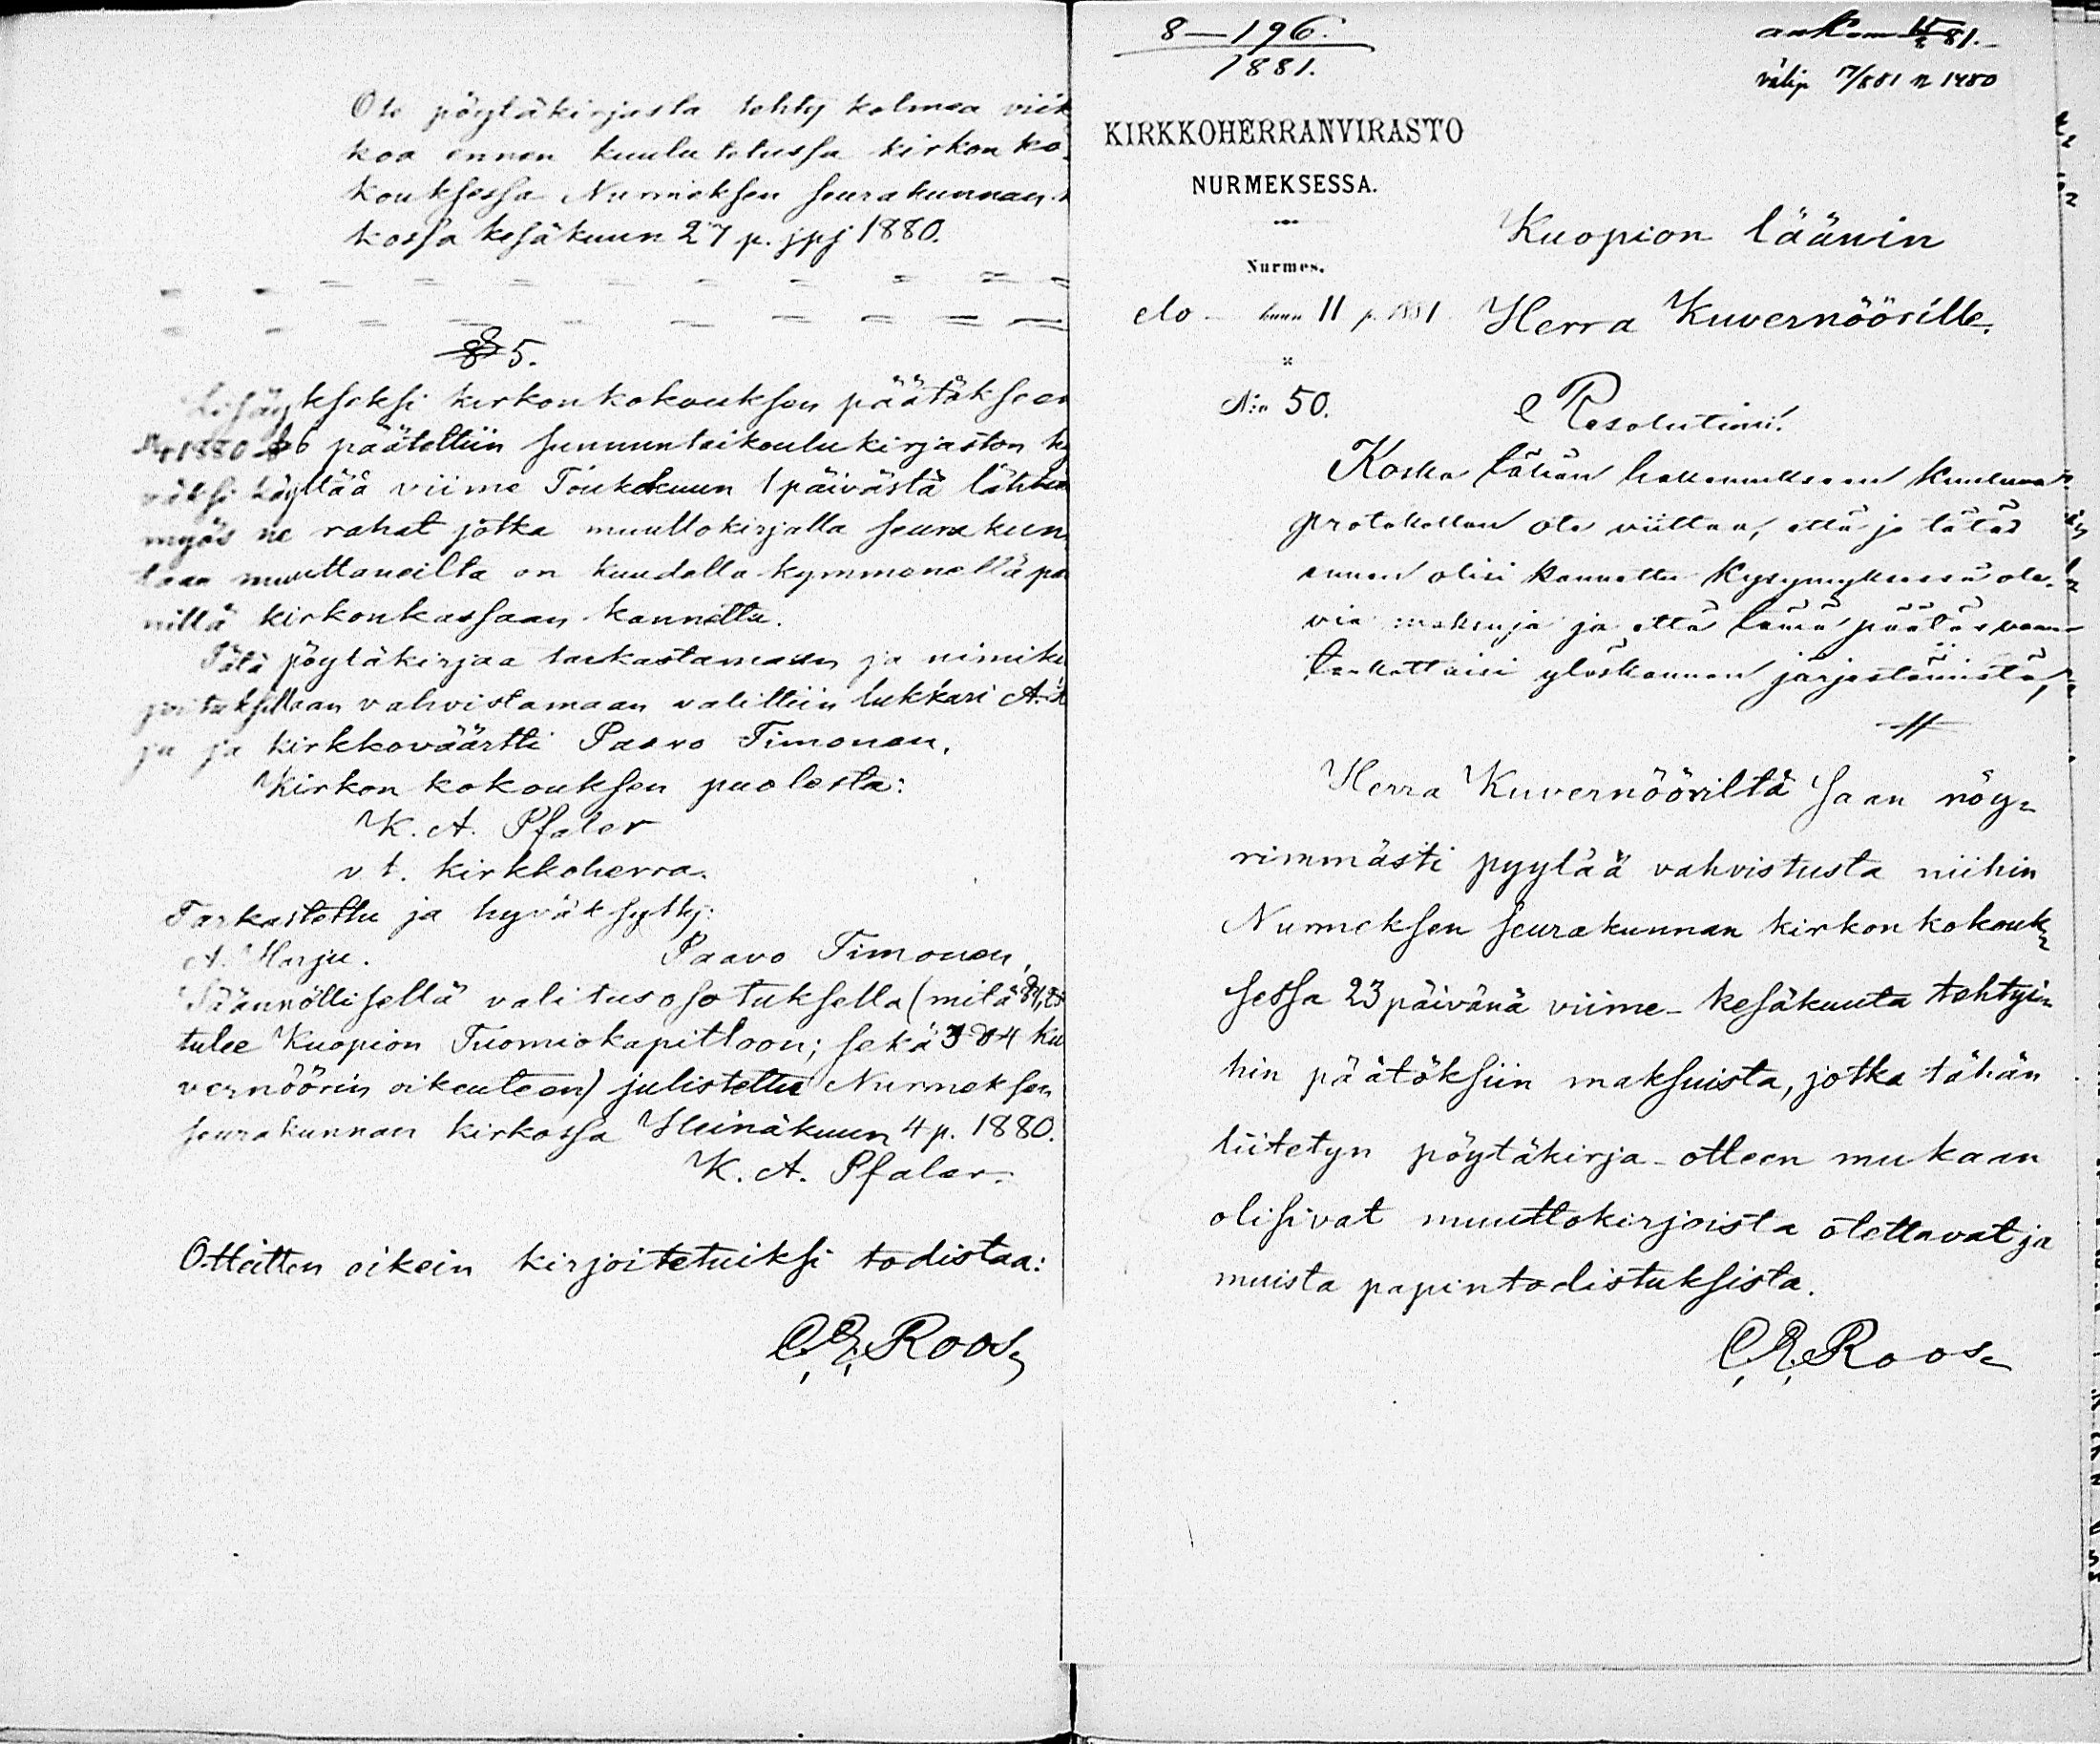 Ote pöytäkirjasta tehty kolmea viik
koa ennen kuulutetussa kirkon ko-
kouksessa Nurmeksen seurakunnan
kossa kesäkuun 27 p. jpj 1880.
§ 5.
Lisäykseksi kirkonkokouksen päätökseen
1880 § 6 päätettiin sunnuntaikoulukirjaston hy
väksi käyttää viime Toukokuun 1 päivästä lähtien
myös ne rahat jotka muuttokirjalla seurakun
taan muuttaneilta on kuudella kymmenellä pen
nillä kirkonkassaan kannettu.
Tätä pöytäkirjaa tarkastamaan ja nimikir
joituksellaan vahvistamaan valittiin lukkari A.
ju ja kirkkoväärtti Paavo Timonen.
Kirkon kokouksen puolesta:
K. A. Pfaler
v t. kirkkoherra.
Tarkastettu ja hyväksytty:
A. Harju. Paavo Timonen,
Säännöllisellä valitusosotuksella (mitä
tulee Kuopion Tuomiokapitloon; sekä 3 § 4 ku
vernöörin oikeuteen) julistettu Nurmeksen
seurakunnan kirkossa Heinäkuun 4 p. 1880.
K. A. Pfaler.
Otteitten oikein kirjoitetuiksi todistaa:
C. E. Roos
8—196.
1881.
ank. 15/8 81.
välip 17/8 81 n 1480
KIRKKOHERRANVIRASTO
NURMEKSESSA.
Nurmes.
elo- kuun 11 p. 1881
N:o 50.
Kuopion läänin
Herra Kuvernöörille.
Resolutioni:
Koska tähän hakemukseen kuuluva
protokollan ote viittaa, että jo tätä
ennen olisi kannettu kysymyksessä ole-
via maksuja ja että tämä päätös vaan
tarkottaisi ylöskannon järjestämistä,
Herra Kuvernööriltä saan nöy=
rimmästi pyytää vahvistusta niihin
Nurmeksen seurakunnan kirkon kokouk=
sessa 23 päivänä viime- kesäkuuta tehtyi=
hin päätöksiin maksuista, jotka tähän
liitetyn pöytäkirja-otteen mukaan
olisivat muuttokirjoista otettavat ja
muista papintodistuksista.
C. E. Roos